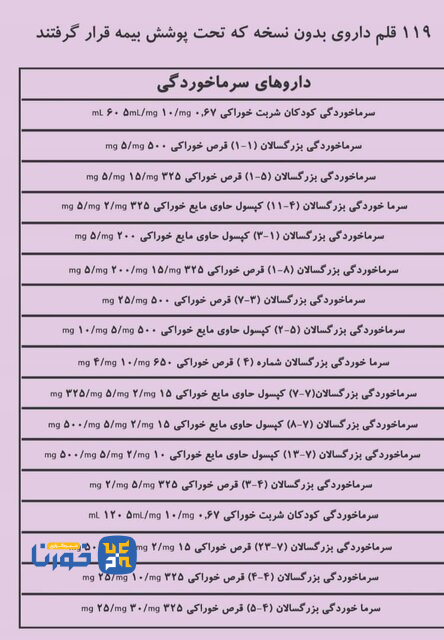 ۱۱۹ قلم داروی بدون نسخه که تحت پوشش بیمه قرار گرفتند
داروهای سرماخوردگی
سرماخوردگی کودکان شربت خوراکی ۰،۶۷ mg/۱۰ mg/۵mL ۶۰ mL
سرماخوردگی بزرگسالان (۱-۱) قرص خوراکی ۵۰۰ mg/۵ mg
سرماخوردگی بزرگسالان (۵-۱) قرص خوراکی ۳۲۵ mg/۱۵ mg/۵ mg
سرما خوردگی بزرگسالان (۴-۱۱) کپسول حاوی مایع خوراکی ۳۲۵ mg/۲ mg/۵ mg
سرماخوردگی بزرگسالان (۱-۳) کپسول حاوی مایع خوراکی ۲۰۰ mg/۵ mg
سرماخوردگی بزرگسالان (۸-۱) قرص خوراکی ۳۲۵ mg/۱۵ mg/۲۰۰ mg/۵ mg
سرماخوردگی بزرگسالان (۳-۷) قرص خوراکی ۵۰۰ mg/۲۵ mg
سرماخوردگی بزرگسالان (۵-۲) کپسول حاوی مایع خوراکی ۵۰۰ mg/۵ mg/۱۰ mg
سرما خوردگی بزرگسالان شماره (۴ ) قرص خوراکی ۶۵۰ mg/۱۰ mg/۴ mg
سرماخوردگی بزرگسالان(۷-۷) کپسول حاوی مایع خوراکی ۱۵ mg/۲ mg/۵ mg/۳۲۵ mg
سرماخوردگی بزرگسالان (۷-۸) کپسول حاوی مایع خوراکی ۱۵ mg/۲ mg/۵ mg/۵۰۰ mg
سرماخوردگی بزرگسالان (۷-۱۳) کپسول حاوی مایع خوراکی ۱۰ mg/۲ mg/۵ mg/۵۰۰ mg
سرماخوردگی بزرگسالان (۴-۳) قرص خوراکی ۳۲۵ mg/۵ mg/۲ mg
سرماخوردگی کودکان شربت خوراکی ۰،۶۷ mg/۱۰ mg/۵mL ۱۲۰ mL
سرماخوردگی بزرگسالان (۷-۲۳) قرص خوراکی ۱۵ mg/۲ mg
سرماخوردگی بزرگسالان (۴-۴) قرص خوراکی ۳۲۵ mg/۱۰ mg/۲۵ mg
سرما خوردگی بزرگسالان (۴-۵) قرص خوراکی ۳۲۵ mg/۳۰ mg/۲۵ mg